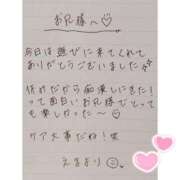 お兄様へ♡
今日は遊びに来てくれて
ありがとうございました
だから痴漢しにきた!
って面白いお兄様でとって
も楽しかった〜♡
ケア大事だね!笑
えまより☺